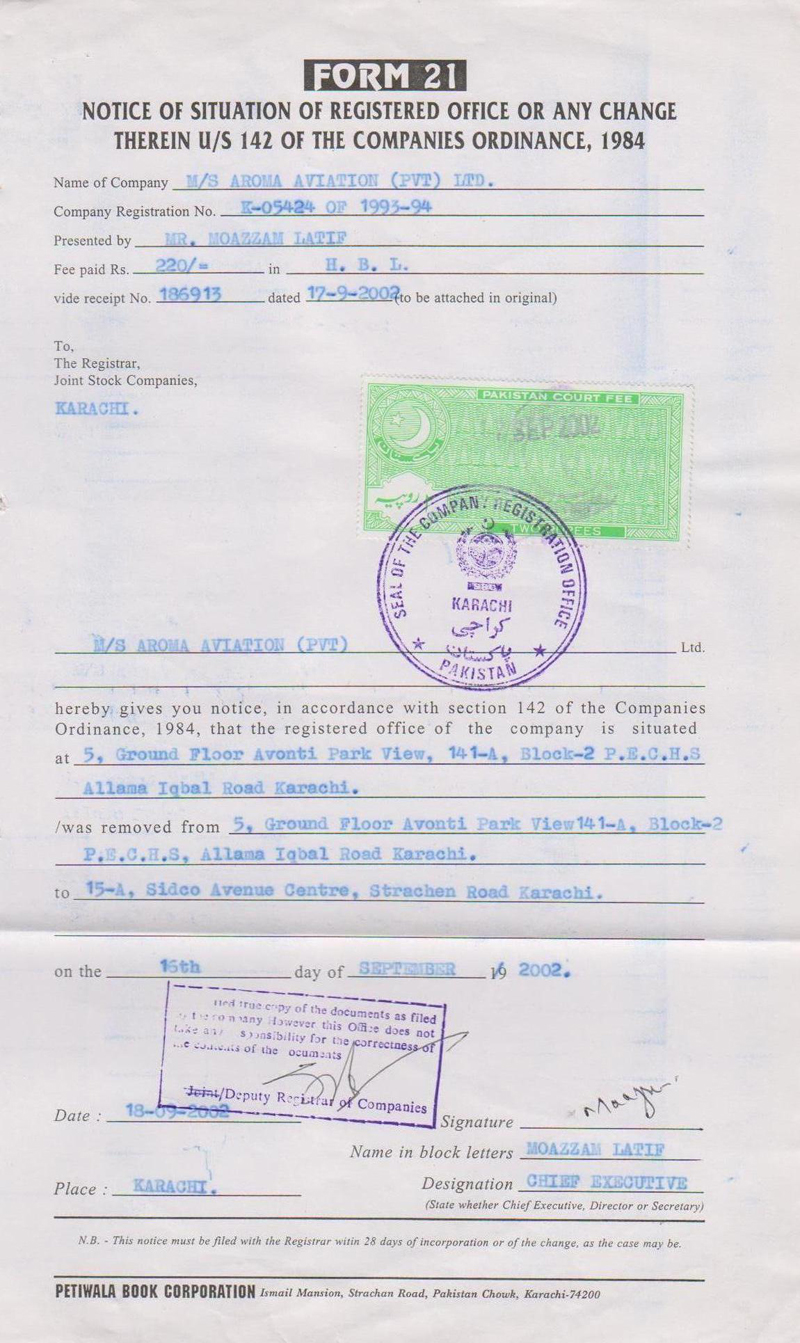 FORM 21
NOTICE OF SITUATION OF REGISTERED OFFICE OR ANY CHANGE
THEREIN U/S 142 OF THE COMPANIES ORDINANCE, 1984
Name of Company M/S AROMA AVIATION (PVT) LTD.
Company Registration No. K-05424 OF 1993-94
Presented by MR. MOAZZAM LATIF
Fee paid Rs. 220/= in H. B. L.
vide receipt No. 186913 dated 17-9-2002 (to be attached in original)
To,
The Registrar,
Joint Stock Companies,
KARACHI.
PAKISTAN COURT FEE
SEP 2002
روپیہ
SEAL OF THE COMPANY REGISTRATION OFFICE
KARACHI
کراچی
پاکستان
PAKISTAN
M/S AROMA AVIATION (PVT) Ltd.
hereby gives you notice, in accordance with section 142 of the Companies
Ordinance, 1984, that the registered office of the company is situated
at 5, Ground Floor Avonti Park View, 141-A, Block-2 P.E.C.H.S
Allama Iqbal Road Karachi.
/was removed from 5, Ground Floor Avonti Park View141-A, Block-2
P.E.C.H.S, Allama Iqbal Road Karachi.
to 15-A, Sidco Avenue Centre, Strachen Road Karachi.
on the 16th day of SEPTEMBER 19 2002.
true copy of the documents as filed
However this Office does not
for the correctness of
of the
Joint/Deputy Registrar of Companies
Date : 18-09-2002
Signature
Name in block letters MOAZZAM LATIF
Place : KARACHI.
Designation CHIEF EXECUTIVE
(State whether Chief Executive, Director or Secretary)
N.B. - This notice must be filed with the Registrar witin 28 days of incorporation or of the change, as the case may be.
PETIWALA BOOK CORPORATION Ismail Mansion, Strachan Road, Pakistan Chowk, Karachi-74200